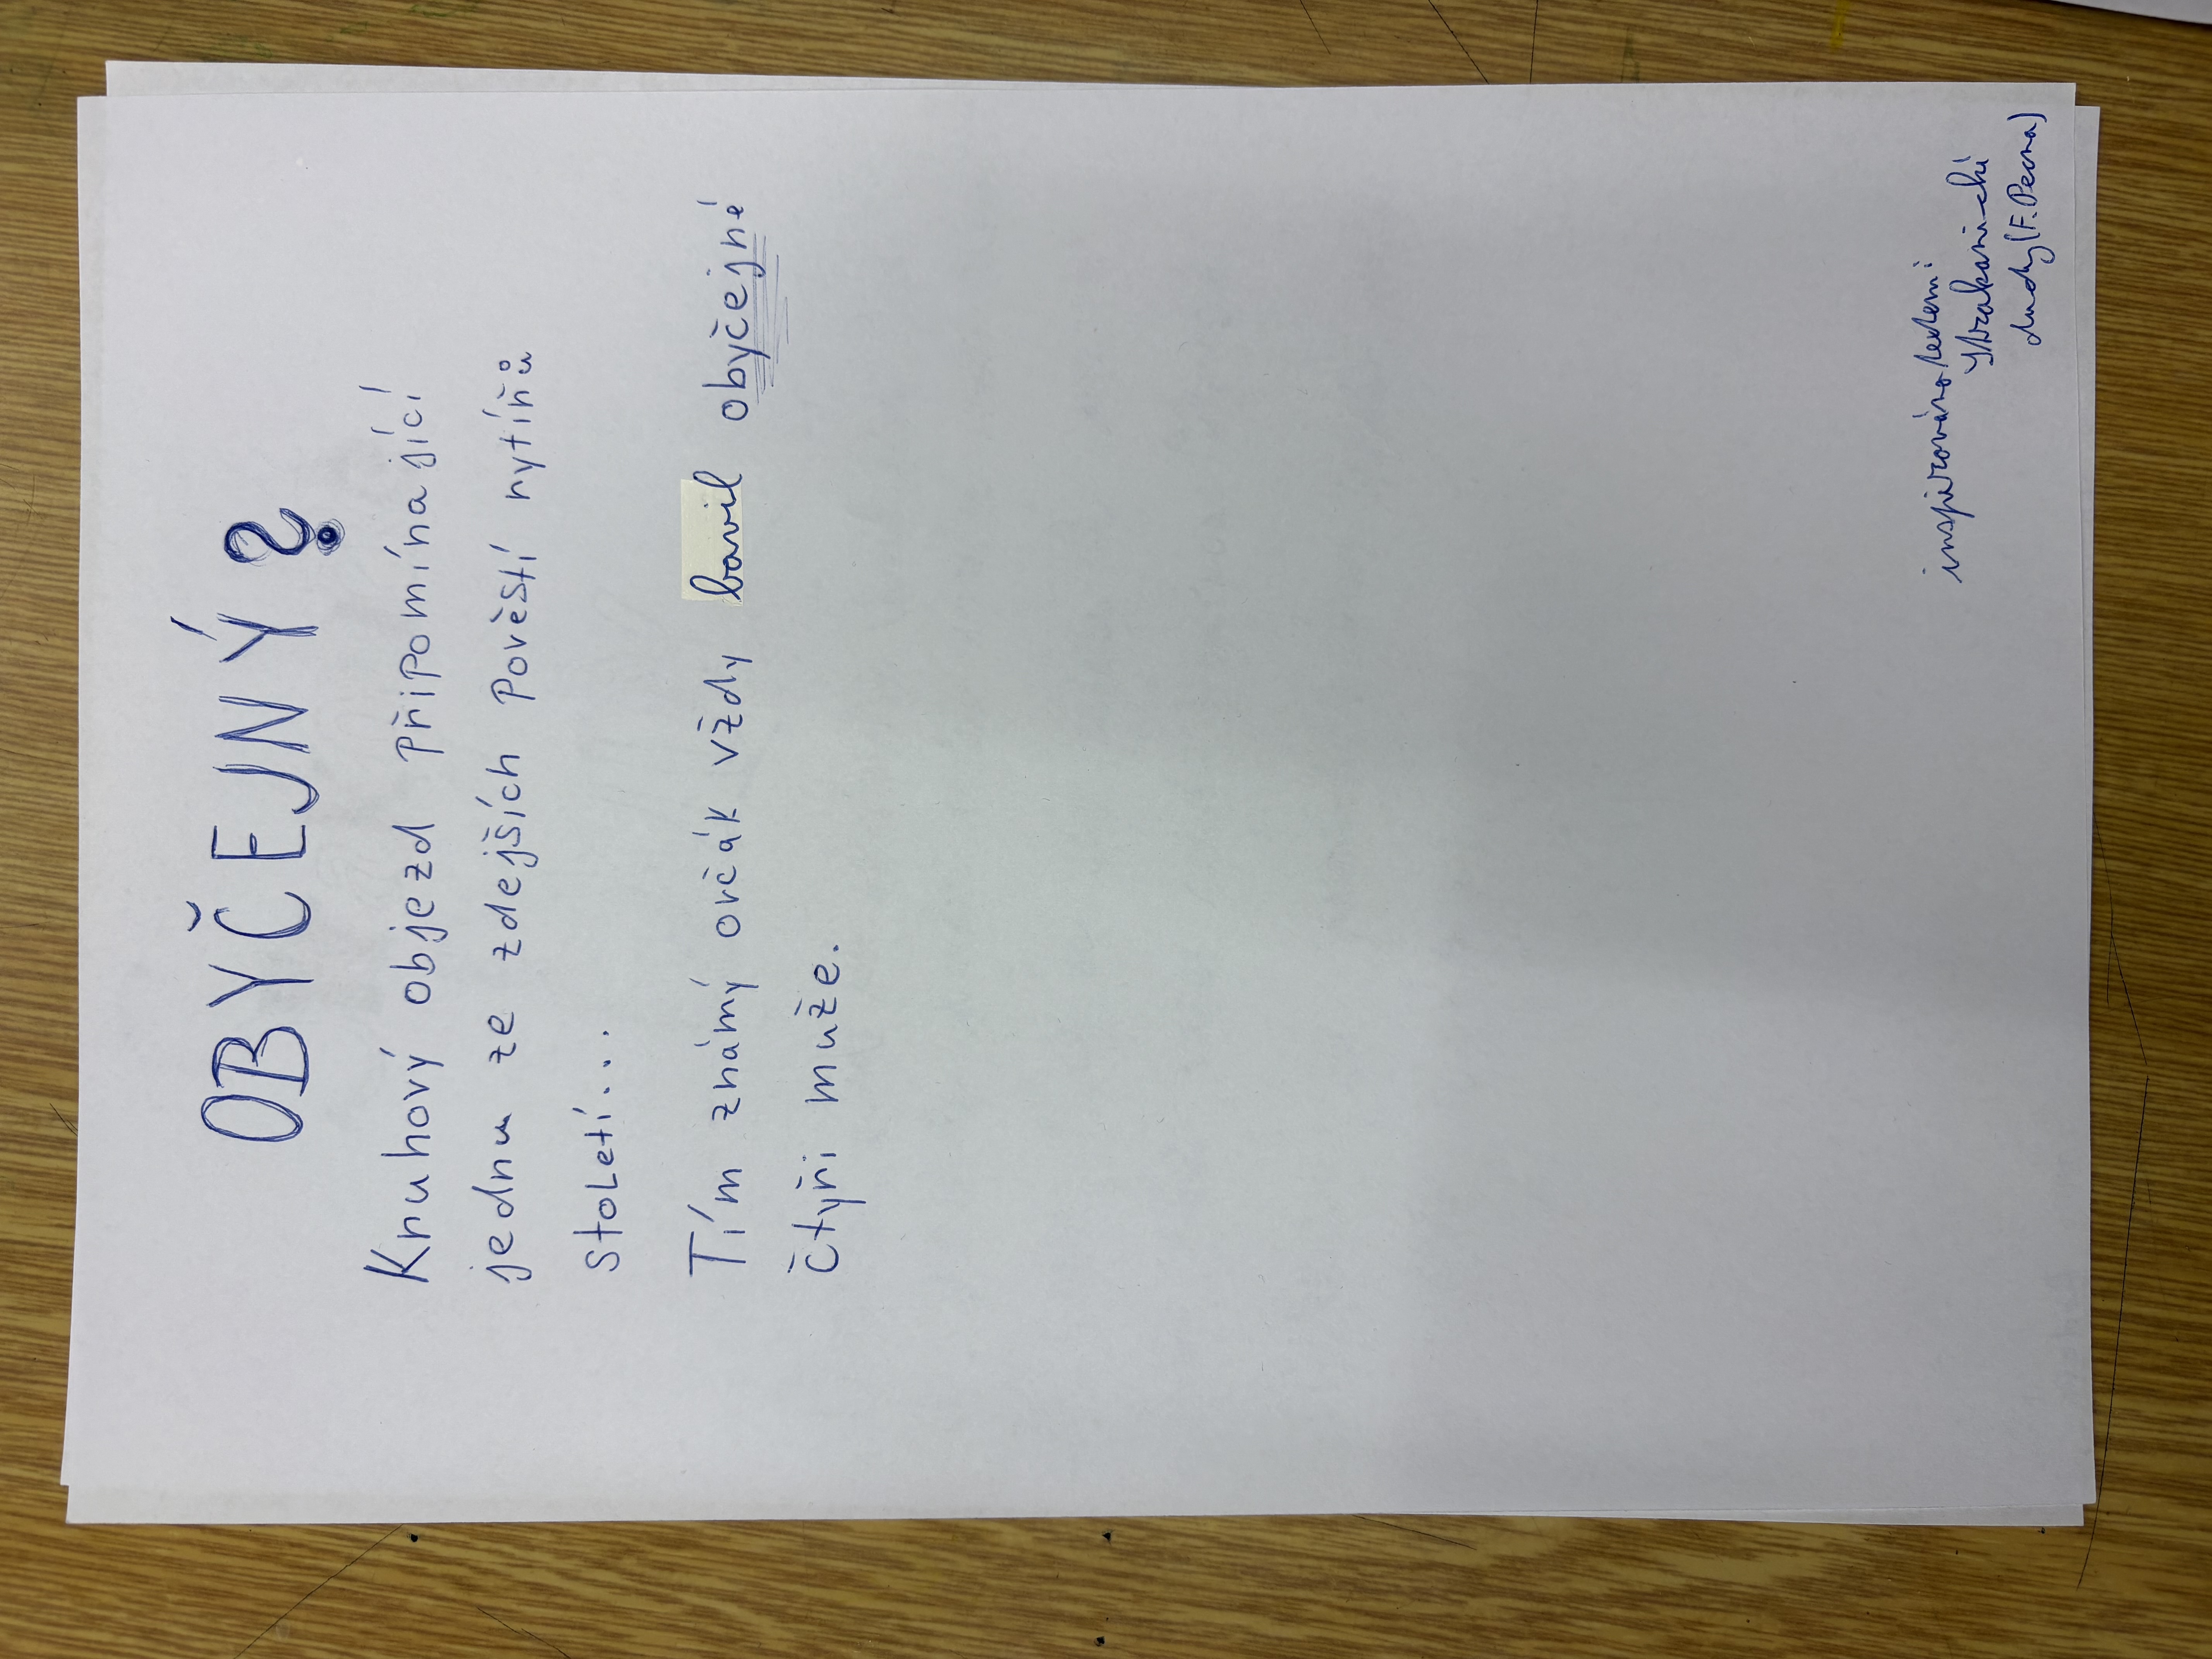 OBYČEJNÝ?
Kruhový objezd připomínající
jednu ze zdejších pověstí rytířů
století...
Tím známý ovčák vždy bavil obyčejné
čtyři muže.
inspirováno
dudy (F. Pecna)